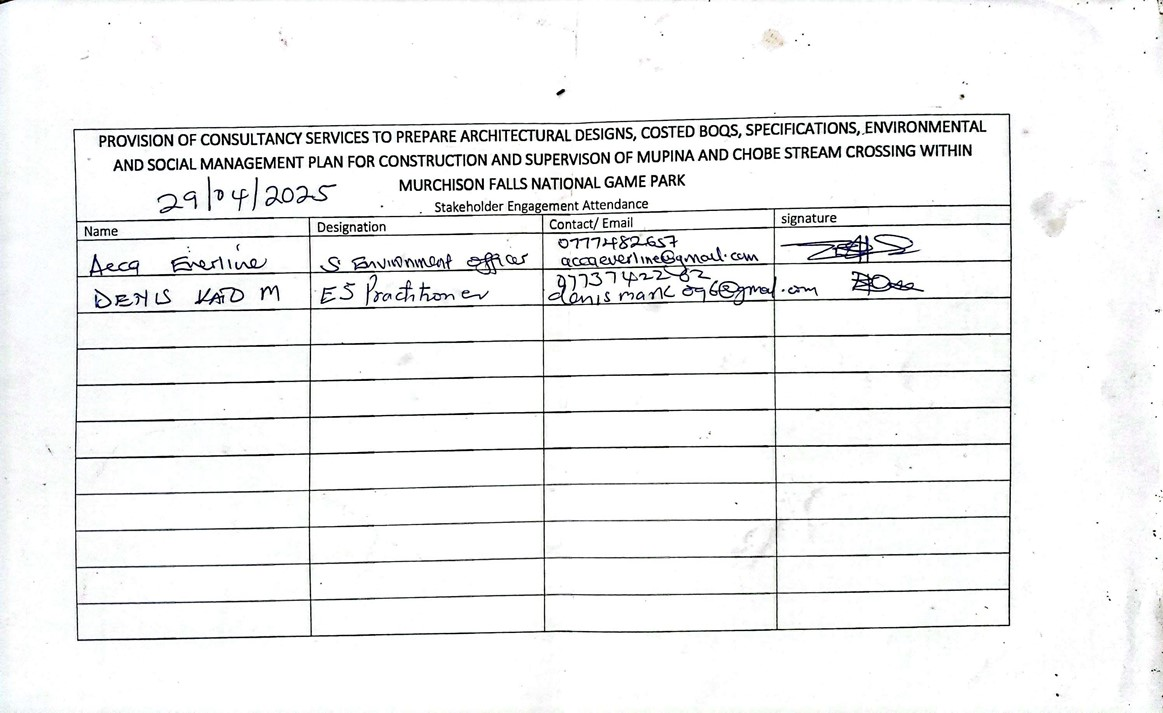 PROVISION OF CONSULTANCY SERVICES TO PREPARE ARCHITECTURAL DESIGNS, COSTED BOQS, SPECIFICATIONS, ENVIRONMENTAL
AND SOCIAL MANAGEMENT PLAN FOR CONSTRUCTION AND SUPERVISON OF MUPINA AND CHOBE STREAM CROSSING WITHIN
MURCHISON FALLS NATIONAL GAME PARK
29/04/2025
Stakeholder Engagement Attendance
Name Designation Contact/ Email signature
0777482657
Aecq Enerline S Environment officer accqeverline@gmail.com
0773742262
DENIS KATO M ES Practitioner denismark096@gmail.com